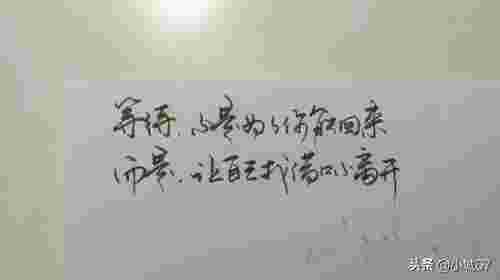 等待,不是为了你能回来
而是,让自己找借口不离开
头条@小城37